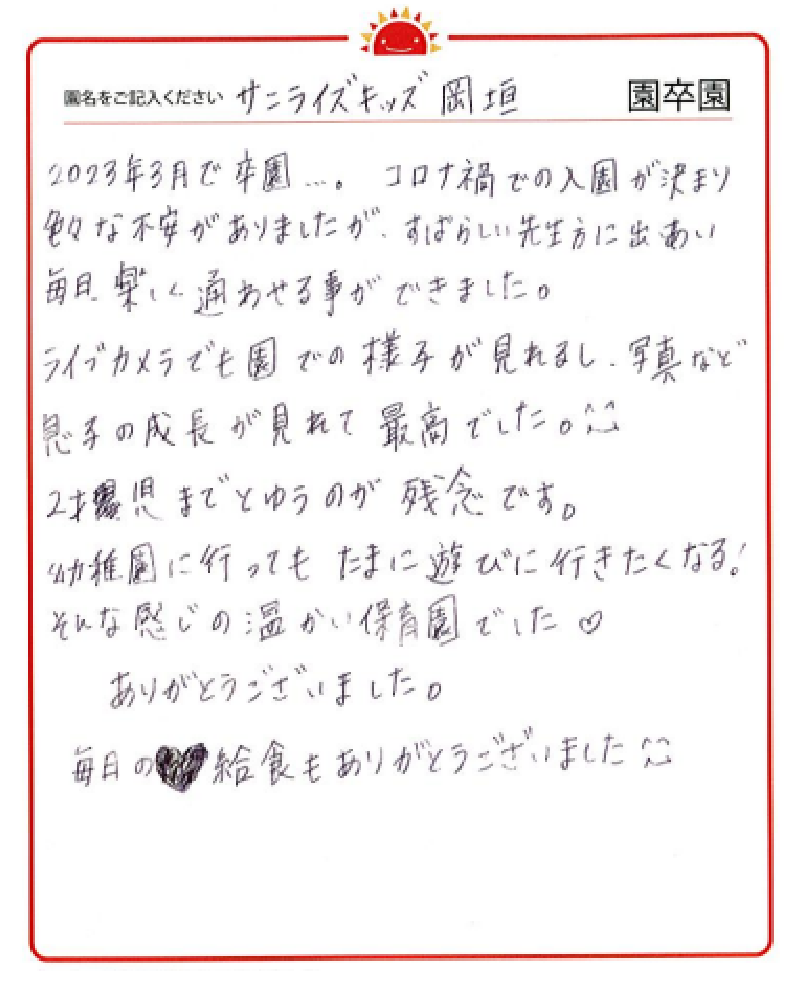 園名をご記入ください サンライズキッズ 岡垣 園卒園
2023年3月で卒園…。 コロナ禍での入園が決まり
色々な不安がありましたが、すばらしい先生方に出あい
毎日 楽しく通わせる事ができました。
ライブカメラでも園での様子が見れるし、写真など
息子の成長が見れて最高でした。^^
2才児までとゆうのが残念です。
幼稚園に行っても たまに遊びに行きたくなる!
そんな感じの温かい保育園でした♡
ありがとうございました。
毎日の♥給食もありがとうございました^^